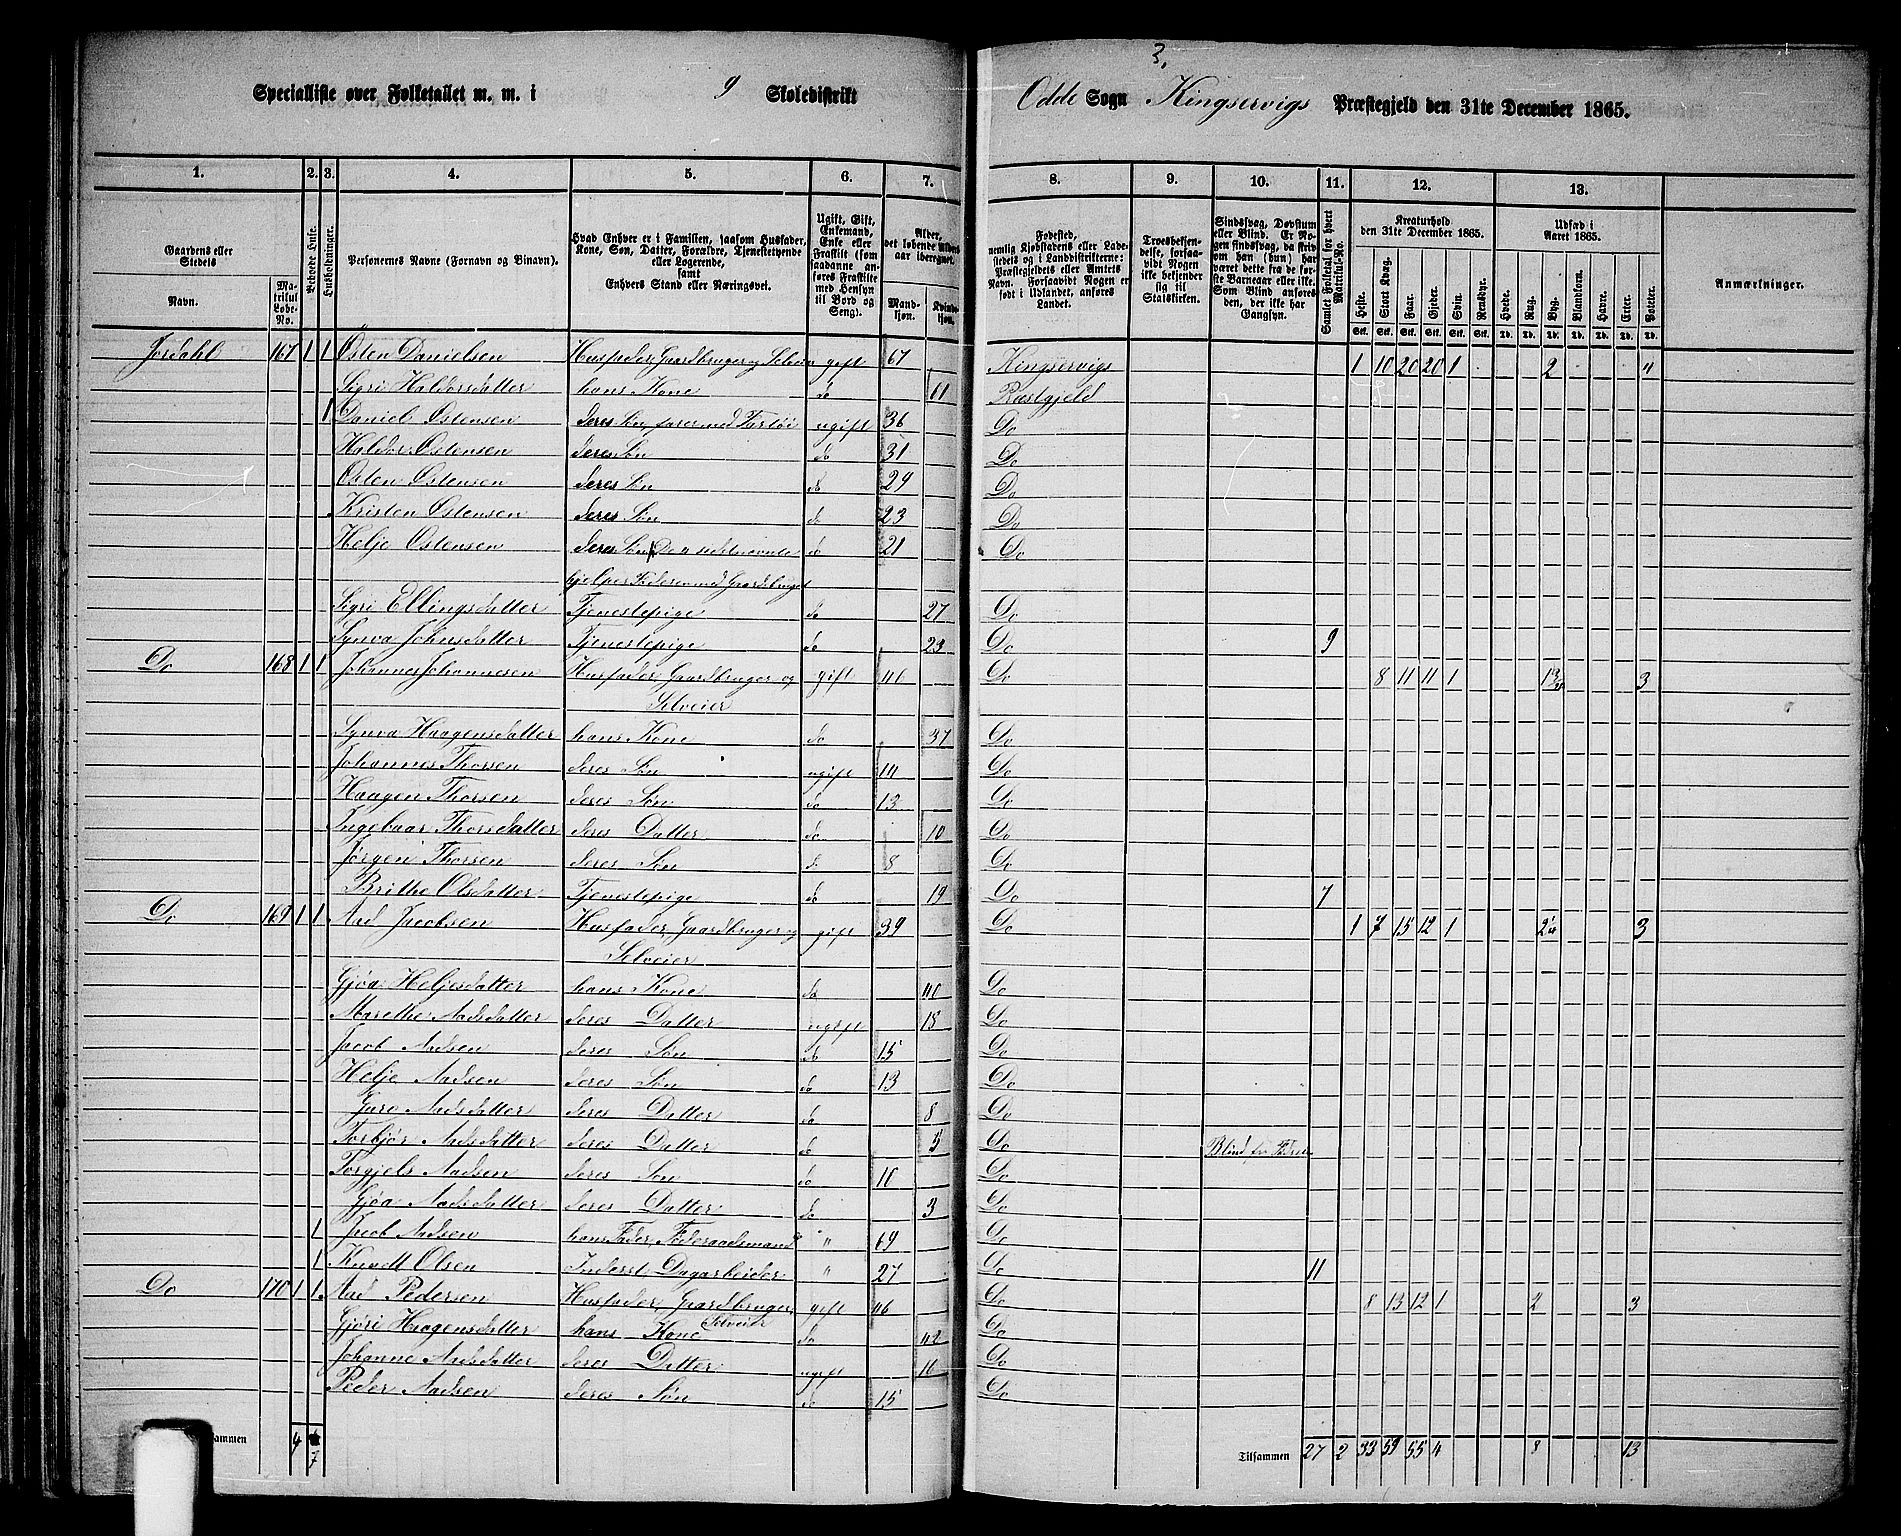 3.
Specialliste over Folketallet m. m. i 9 Skoledistrikt Odde Sogn Kingservigs Præstegjeld den 31te December 1865.
1. 2. 3. 4. 5. 6. 7. 8. 9. 10. 11. 12. 13.
Gaardens eller Stedets Navn. Matrikul Løbe-No. Beboede Huse. Husholdninger. Personernes Navne (Fornavn og Binavn). Hvad Enhver er i Familien, saasom Husfader, Kone, Søn, Datter, Forældre, Tjenestetyende eller Logerende, samt Enhvers Stand eller Næringsvei. Ugift, Gift, Enkemand, Enke eller Fraskilt (som saadanne anføres Fraskilte med Hensyn til Bord og Seng). Alder, det løbende Alders-aar iberegnet. Mandkjøn. Kvindekjøn. Fødested, Troesbekjendelse, forsaavidt Nogen ikke bekjender sig til Statskirken. Sindssvag, Døvstum eller Blind. Samlet Folketal for hvert Matrikul-No. Kreaturhold den 31te December 1865. Heste. Stort Kvæg. Faar. Gjeder. Svin. Rensdyr. Udsæd i Aaret 1865. Hvede. Rug. Byg. Blandkorn. Havre. Erter. Poteter. Anmærkninger.
Jordahl 167 1 1 Østen Danielsen Husfader, Gaardbruger og Selveier gift 67 Kingservigs 1 10 20 20 1 2 4
Sigri Haldorsdatter hans Kone do 61 Præstgjeld
1 Daniel Østensen deres Søn, farer med Fartøi ugift 36 Do
Haldor Østensen deres Søn do 31 Do
Østen Østensen deres Søn do 29 Do
Kristen Østensen deres Søn do 23 Do
Helje Østensen deres Søn do 21 Do
hjelper Faderen med Gaardsbruget
Sigri Ellingsdatter Tjenestepige do 27 Do
Synva Johnsdatter Tjenestepige do 23 Do 9
Do 168 1 1 Johannes Johannesen Husfader, Gaardbruger og gift 46 Do 8 11 11 1 3
Selveier
Synva Haagensdatter hans Kone do 37 Do
Johannes Thorsen deres Søn ugift 14 Do
Haagen Thorsen deres Søn do 13 Do
Ingebaar Thorsdatter deres Datter do 10 Do
Jørgen Thorsen deres Søn do 8 Do
Brithe Olsdatter Tjenestepige do 19 Do 7
Do 169 1 1 Aad Jacobsen Husfader, Gaardbruger og gift 39 Do 1 7 15 12 1 3
Selveier
Gjøa Heljesdatter hans Kone do 40 Do
Marethe Aadsdatter deres Datter ugift 18 Do
Jacob Aadsen deres Søn do 15 Do
Helje Aadsen deres Søn do 13 Do
Guro Aadsdatter deres Datter do 8 Do
Torbjør Aadsdatter deres Datter do 5 Do Blind
Torgjels Aadsen deres Søn do 10 Do
Gjøa Aadsdatter deres Datter do 3 Do
1 Jacob Aadsen hans Fader, Føderaadsmand " 69 Do
1 Knvett Olsen Inderst Dagarbeider " 27 Do 11
Do 170 1 1 Aad Pedersen Husfader, Gaardbruger, gift 46 Do 8 13 12 1 2 3
Selveier
Gjøri Haagensdatter hans Kone do 42 Do
Johanne Aadsdatter deres Datter ugift Do
Peder Aadsen deres Søn do 15 Do
4 7 Tilsammen 27 2 33 59 55 4 8 13